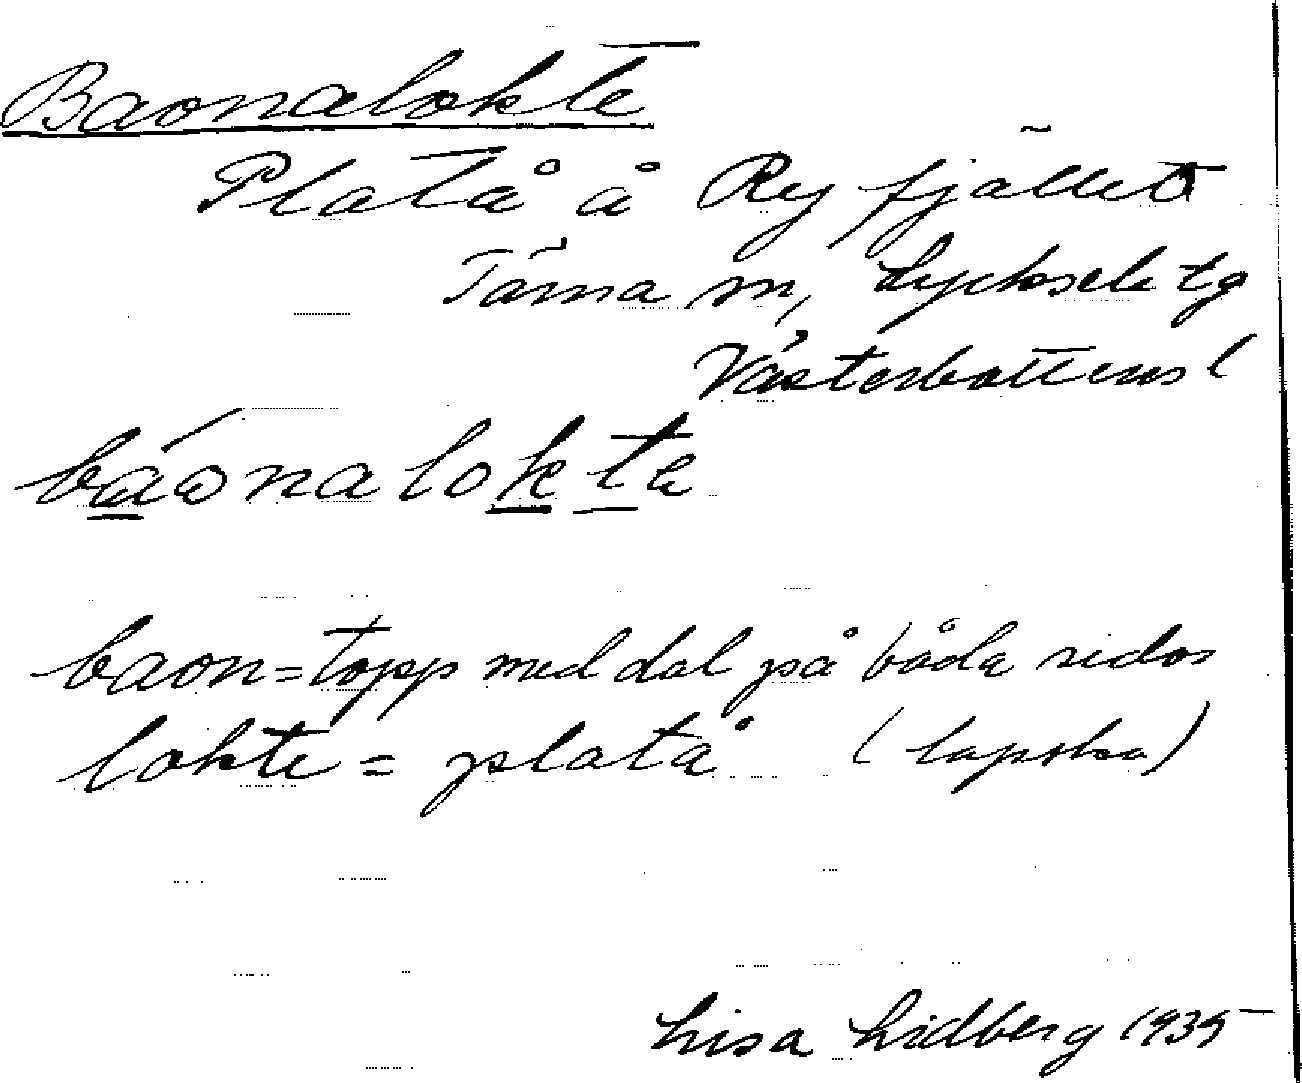 Baonalokte
Platå å Ryfjället
Tärna sn, Lycksele tg
Västerbottens l
báonalokte
baon = topp med dal på båda sidor
lokte = platå (lapska)
Lisa Lidberg 1935